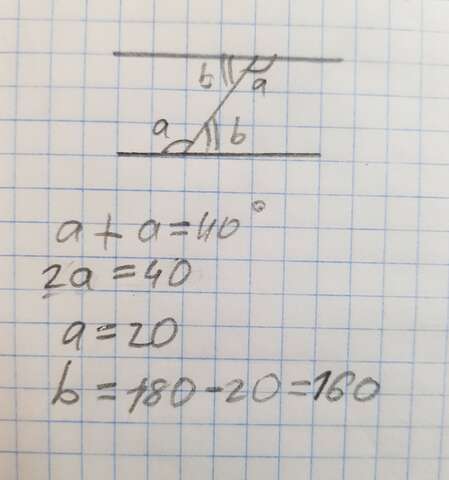 b a
a b
a + a = 40°
2a = 40
a = 20
b = 180 - 20 = 160